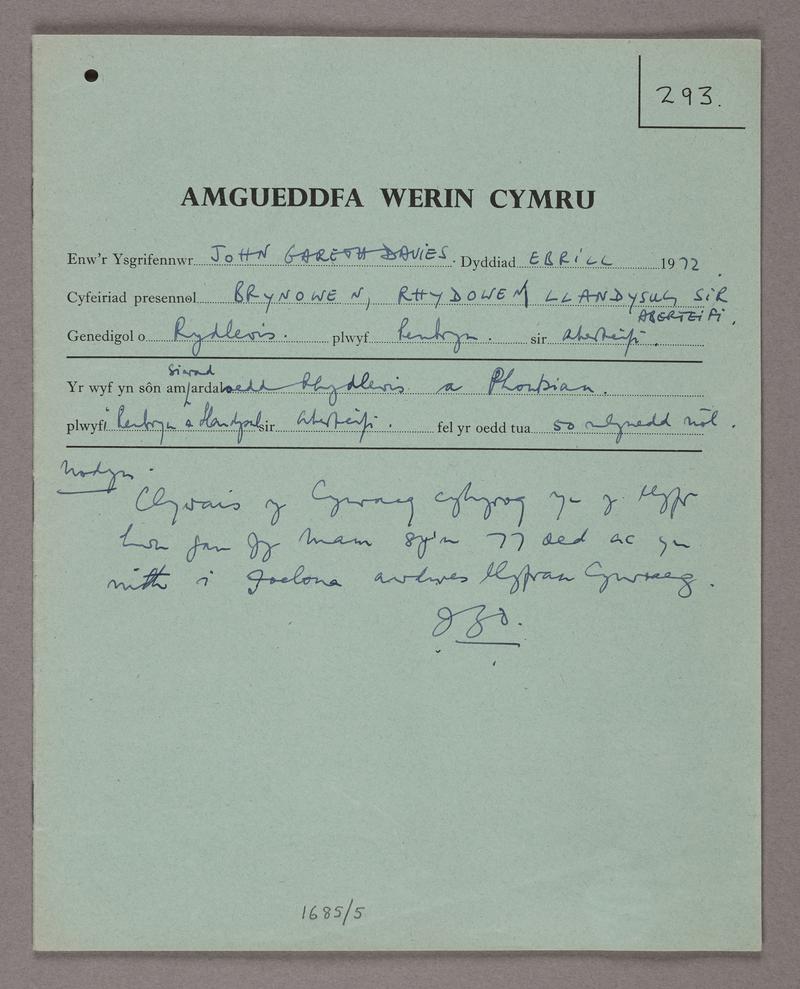 293.
AMGUEDDFA WERIN CYMRU
Enw'r Ysgrifennwr JOHN GARETH DAVIES. Dyddiad EBRILL 1972.
Cyfeiriad presennol BRYNOWEN, RHYDOWEN LLANDYSUL SIR
ABERTEIFI.
Genedigol o Rydlewis. plwyf Penbryn. sir Aberteifi.
siarad
Yr wyf yn sôn am/ardaloedd Rhydlewis a Phontsian.
plwyf Penbryn a Llandysul sir Aberteifi. fel yr oedd tua 50 mlynedd nôl.
Nodyn.
Clywais y Gymraeg cyhyrog yn y llyfr
hwn gan fy Mam sy'n 77 oed ac yn
nith i awdures llyfrau Cymraeg.
JGD.
1685/5